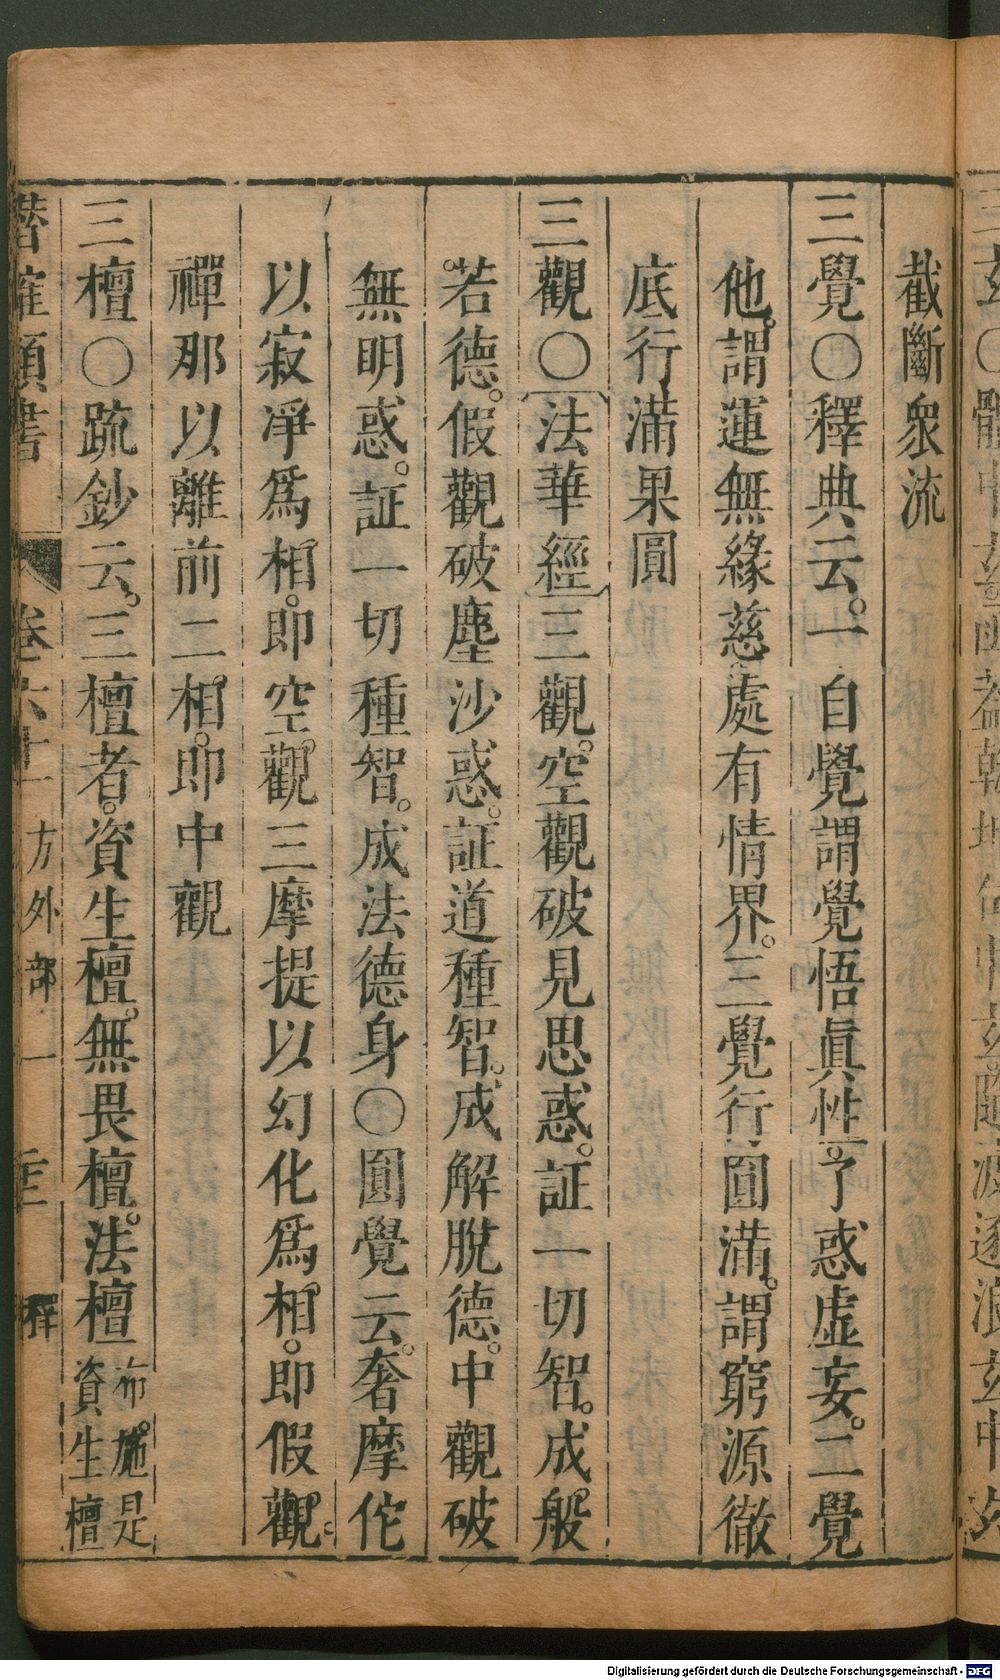 截斷衆流
三覺〇釋典云。一自覺謂覺悟眞性。了惑虛妄。二覺
他。謂運無緣慈。處有情界。三覺行圓滿。謂窮源徹
底行滿果圓
三觀〇法華經三觀。空觀破見思惑。証一切智。成般
若德。假觀破塵沙惑。証道種智。成解脫德。中觀破
無明惑。証一切種智。成法德身〇圓覺云。奢摩佗
以寂凈爲相。即空觀。三摩提以幻化爲相。即假觀。
禪那以離前二相。即中觀
三檀〇疏鈔云。三檀者。資生檀。無畏檀。法檀
布施。是
資生檀
潛確類書 卷六十 方外部一 三 釋
Digitalisierung gefördert durch die Deutsche Forschungsgemeinschaft - DFG